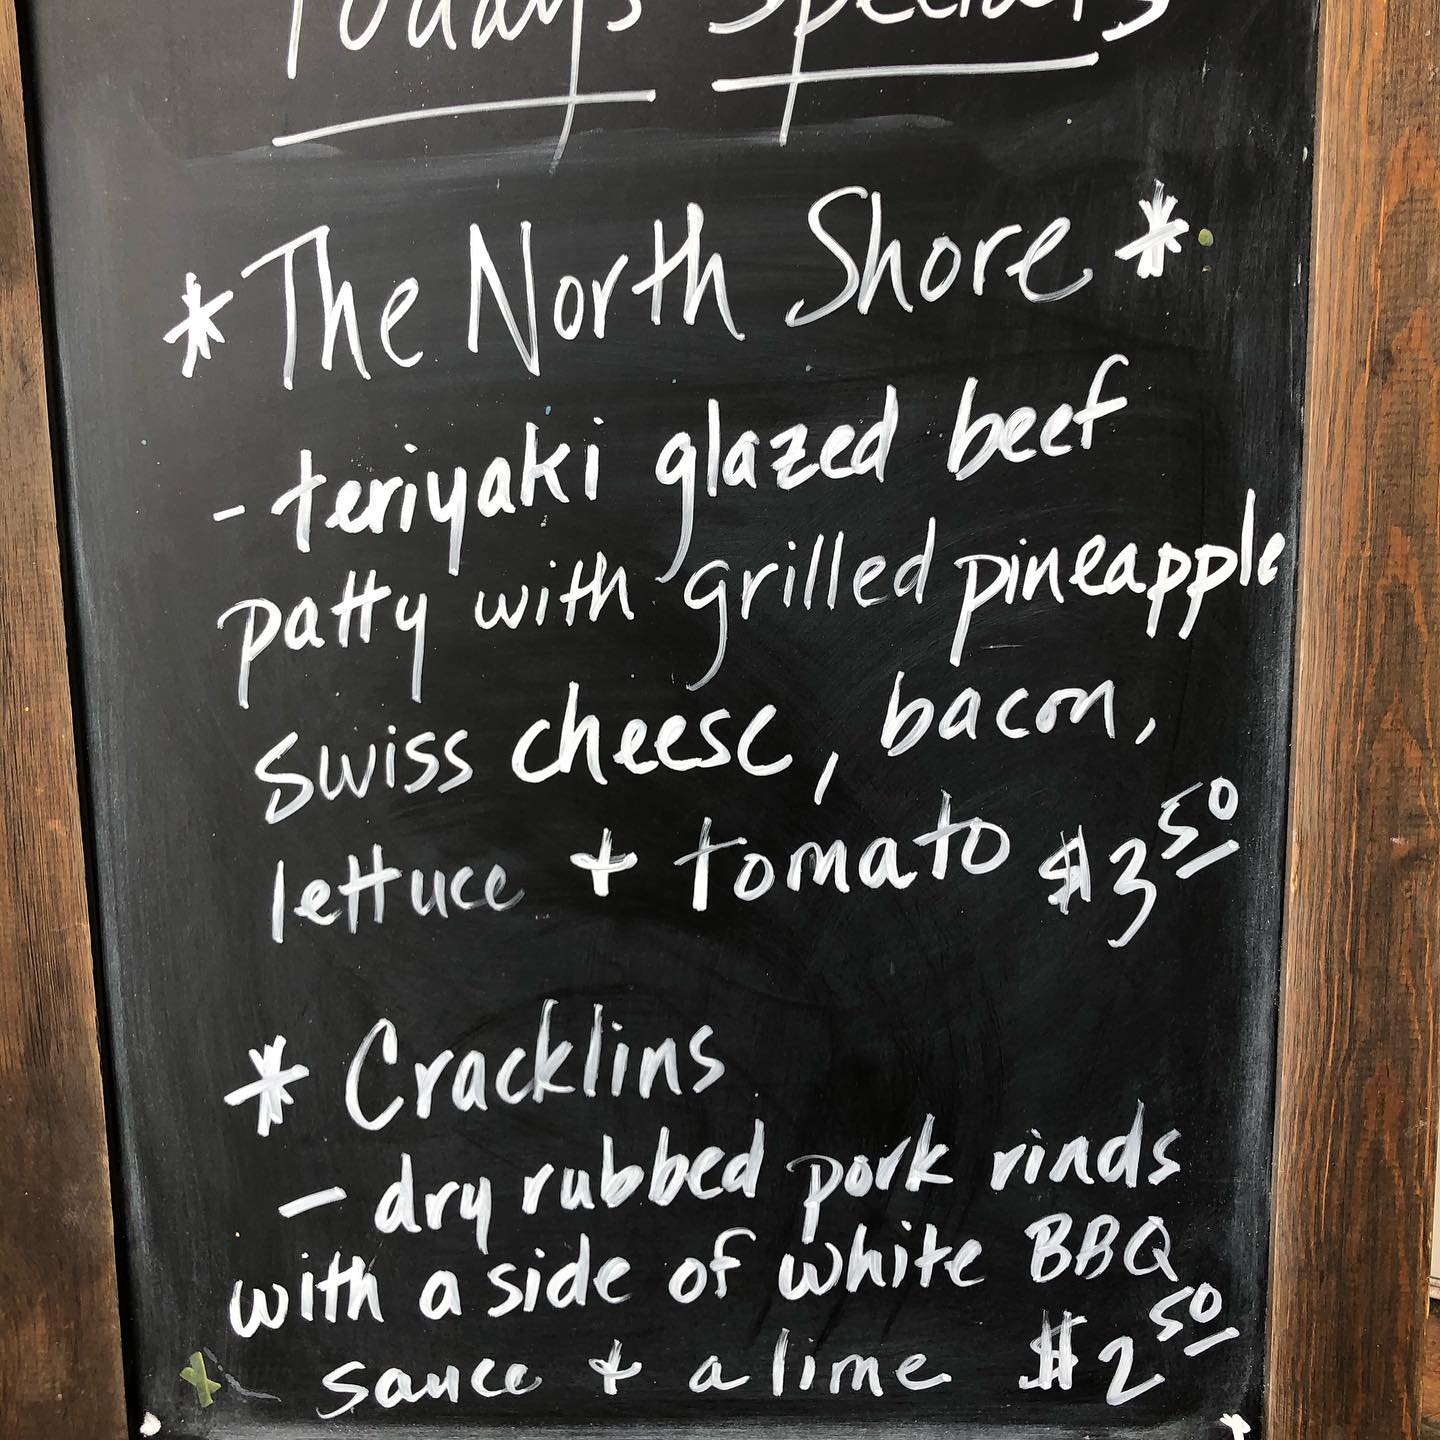 Today's Specials
* The North Shore *
- teriyaki glazed beef
patty with grilled pineapple
swiss cheese, bacon,
lettuce + tomato $3 50
* Cracklins
- dry rubbed pork rinds
with a side of white BBQ
sauce + a lime $2 50